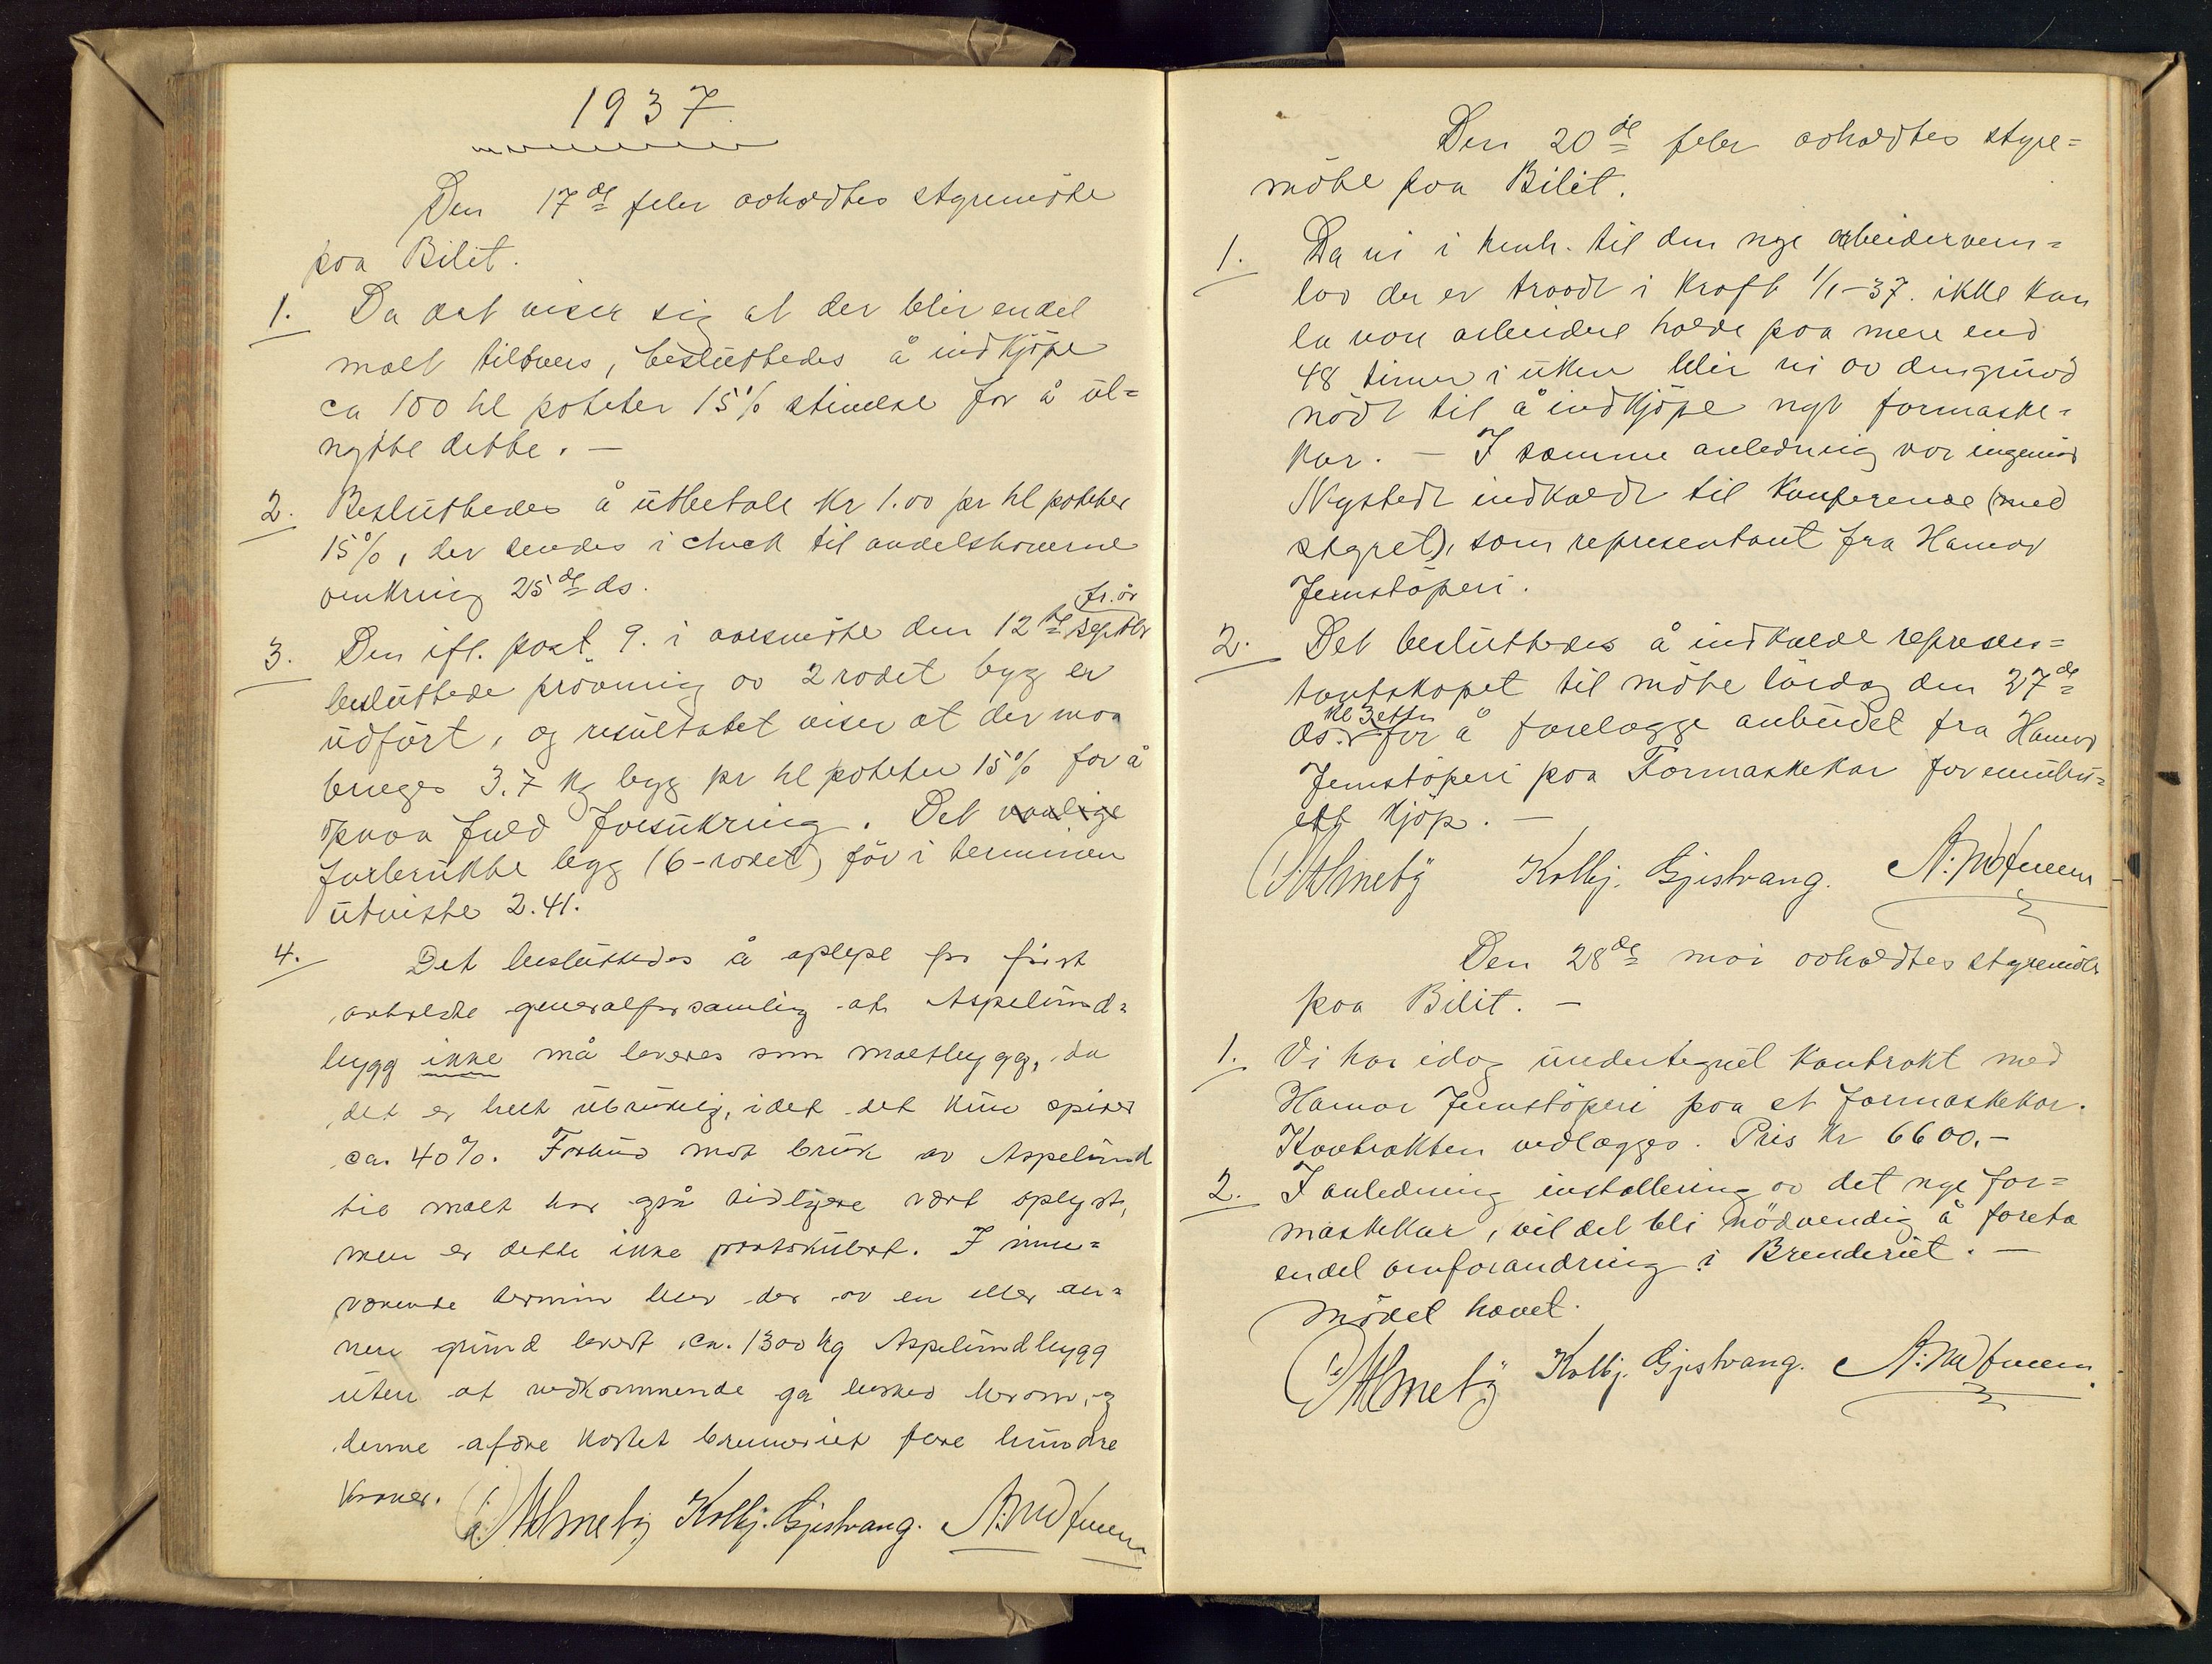 1937.
Den 17de febr avholdtes styremöte
paa Bilit.
1. Da det viser sig at der blir endel
malt tilovers, besluttedes å indkjöpe
ca 100 hl poteter 15% stivelse for å ut=
nytte dette. —
2. Besluttedes å utbetale Kr 1.00 pr hl poteter
15%, der sendes i check til andelshaverne
omkring 25de ds.
3. Den ifl. post 9. i aarsmöte den 12te septbr fr. år
besluttede prövning av 2 radet byg er
udfört, og resultatet viser at der maa
bruges 3.7 kg bygg pr hl poteter 15% for å
opnaa fuld forsukring. Det vanlige
forbrukte bygg (6-radet) för i terminen
utviste 2.41.
4. Det besluttedes å oplese for först
avholdte generalforsamling at Aspelund=
bygg ikke må leveres som maltbygg, da
det er helt ubrukelig, idet det kun spirer
ca. 40%. Forbud mot bruk av Aspelund
til malt har også tidligere vært oplyst,
men er dette ikke protokulert. I inne=
værende termin blev der av en eller an=
nen grund levert ca. 1300 kg Aspelundbygg
uten at vedkommende ga besked herom, og
denne affære kostet brenneriet flere hundre
kroner.
Kolbj. Gjestvang.
Den 20de febr avholdtes styre=
möte paa Bilit.
1. Da vi i henh. til den nye arbeidervern=
lov der er traadt i kraft 1/1-37. ikke kan
la vore arbeidere holde paa mere end
48 timer i uken blir vi av den grund
nödt til å indkjöpe nyt formaske=
kar. — I samme anledning var ingeniör
Nystedt indkaldt til konferense (med
styret), som representant fra Hamar
Jernstöperi.
2. Det besluttedes å indkalde represen=
tantskapet til möte lördag den 27de
ds. kl 3 etm for å forelægge anbudet fra Hamar
Jernstöperi paa Formaskekar for eventu=
elt kjöp. —
Kolbj. Gjestvang.
Den 28de mai avholdtes styremöte
paa Bilit. —
1. Vi har idag undertegnet kontrakt med
Hamar Jernstöperi paa et formaskekar.
Kontrakten vedlægges. Pris kr 6600.-
2. I anledning installering av det nye for=
maskekar, vil det bli nödvendig å foreta
endel omforandring i Brenderiet. —
Mödet hævet.
Kolbj. Gjestvang.